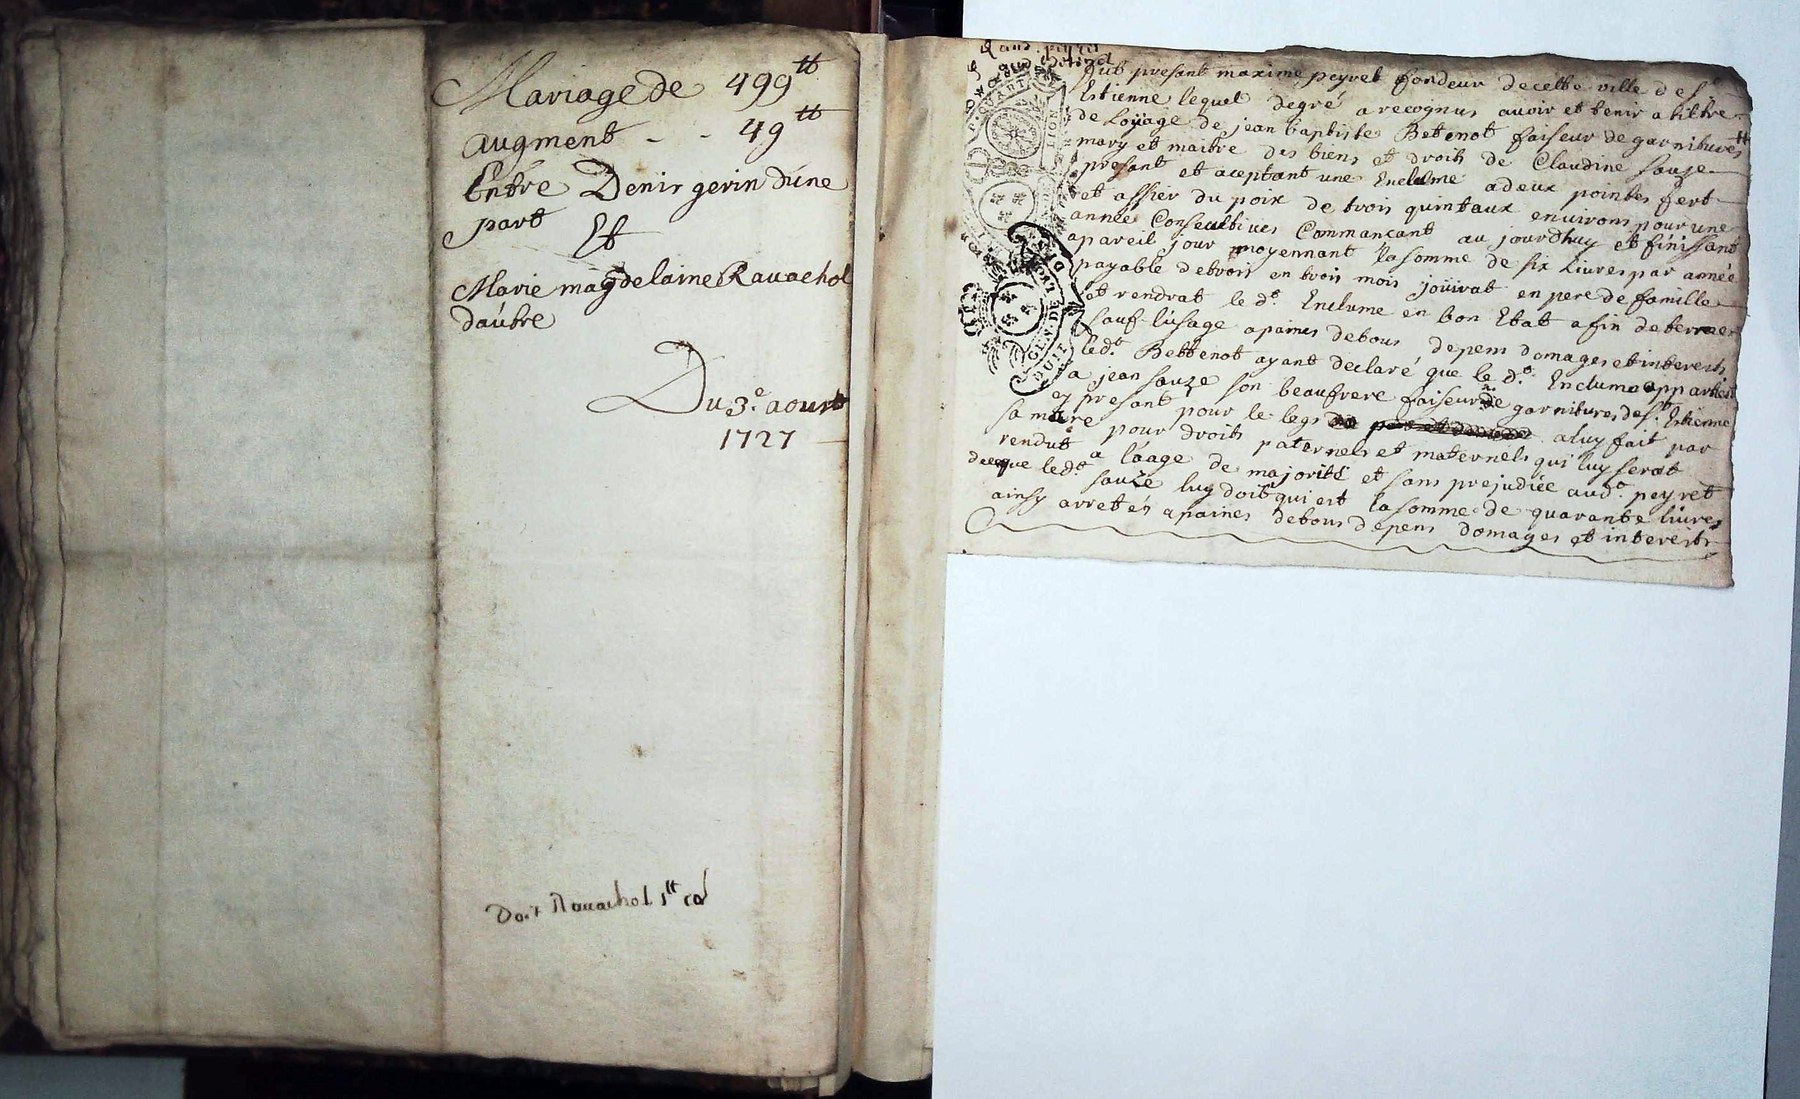 Mariage de 499tt
augment - - 49tt
Entre Denis gerin d'une
part
Et
Marie magdelaine Ravachol
d'autre
Du 3e aoust
1727
Doit Ravachol 1tt
fut presant maxime peyret fondeur de cette ville de st
Estienne lequel de gré a recognus avoir et tenir a tittre
de Loüage de jean baptiste Betenot faiseur de garnitures
mary et maitre des biens et droits de Claudine sauze
presant et aceptant une Enclume a deux pointes fert
et assier du poix de trois quintaux environs pour une
année Consecutives Commancant au jourdhuy et finissant
a pareil jour moyennant la somme de six Livres par année
payable de trois en trois mois joüirat en pere de famille
et rendrat le dt Enclume en bon Etat a fin de terme
sauf l'usage a paines de tous depens domages et interests
led.t Bettenot ayant declaré que le d.t Enclume appartient
a jean sauze son beaufrere faiseur de garnitures de st. Estienne
cy presant pour le legs a luy fait par
sa mere pour droits paternels et maternels qui luy serat
rendut a l'aage de majorité et sans prejudice aud.t peyret
de ce que led.t sauze luy doit qui est la somme de quarante livres
ainsy arretés a paines de tous depens domages et interests